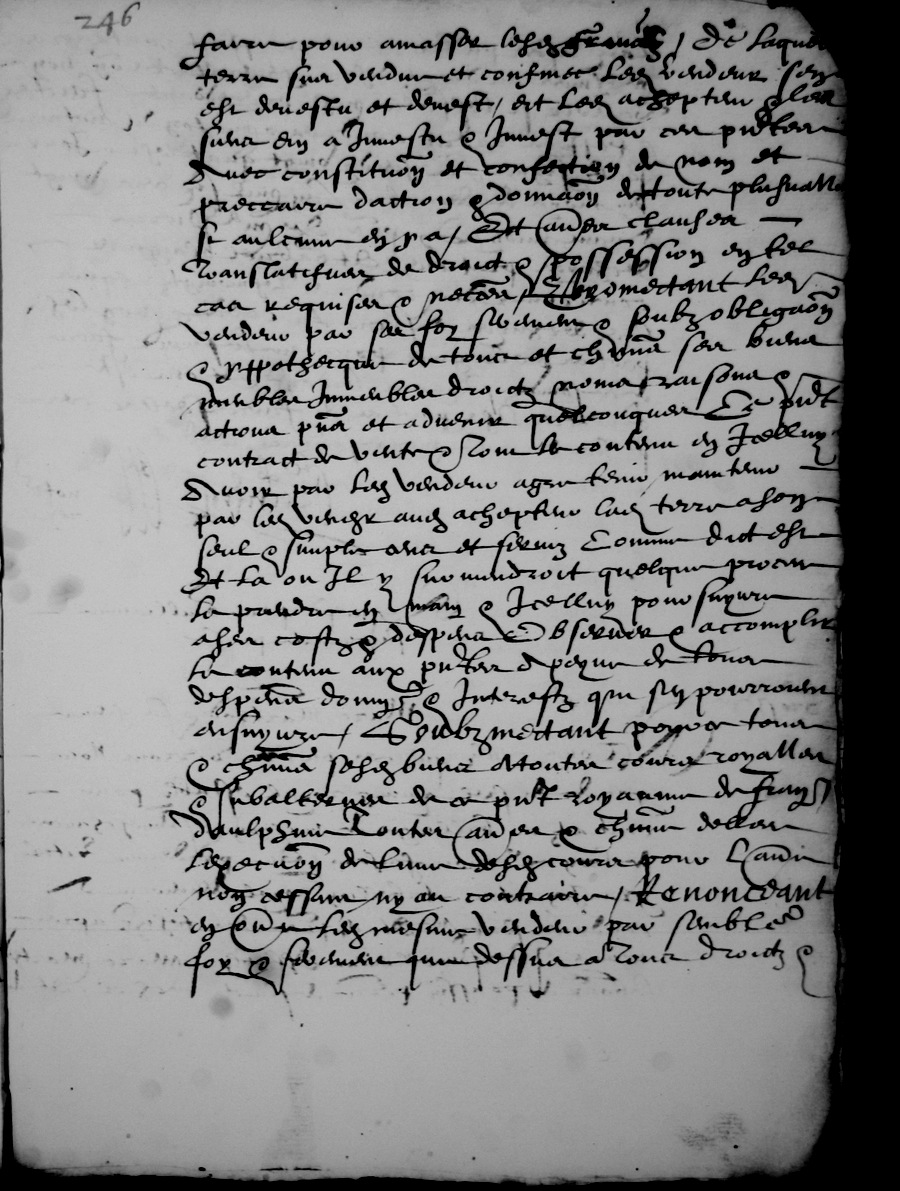 246
faire pour amasser lesd / De laquelle
terre sus vendue et confinee led vendeur sen
est devestu et devest, et led achepteur & les
siens en a Investu & Investe par ces pntes
Avec constitution et confection de nom et
preccaire daction & donnaon de toute plusvalle
si aulcune en y a / Et aues clauses
translatifves de droict & possession en tel
cas requises & neccres / Promectant led
vendeur par ses foy serment & soubz obligaon
& yppothecque de tous et chuns ses biens
meubles Immeubles droictz noms raisons &
actions pns et advenir quelconques Ce pnt
contract de vente & tout le contenu en Icelluy
Avoir par led vendeur agre tenir maintenir
par led vendr aud achepteur lad terre a son
seul & simple et Comme dict est
Et la ou Il y surviendroit quelque proces
le prendre en main & Icelluy poursuyvre
a ses costz & despens Observer & accomplir
le contenu aux pntes a peyne de tous
despens domges & Interestz qui sen pourroient
ensuyvre / Soubzmectant pour ce tous
& chuns sesd biens a toutes cours royalles
& subalternes de ce pnt royaume de france
daulphine toutes aues & chune delles
lexecuon de lune desd cours pour lautre
non cessant ny au contraire / Renonceant
en oue led mesme vendeur par semblable
foy & serment que dessus a tous droictz &